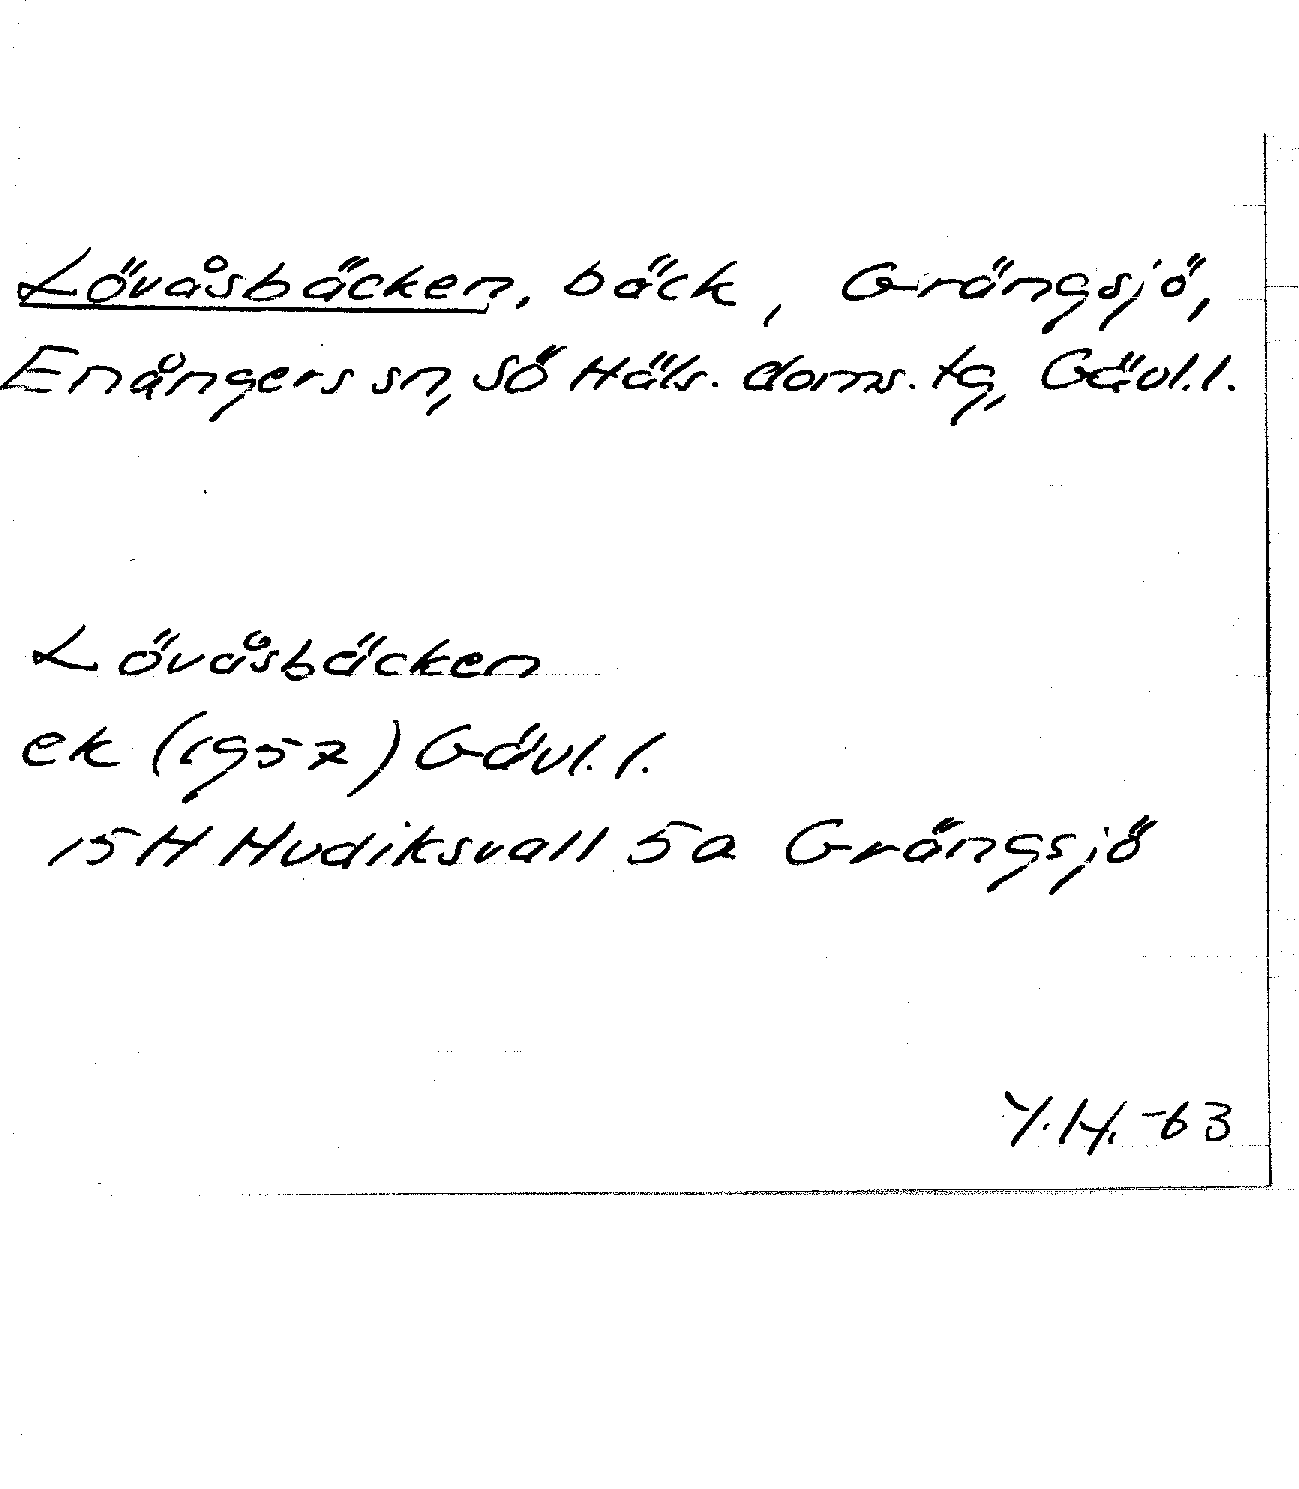 Lövåsbäcken, bäck, Grängsjö,
Enångers sn, Sö Häls. doms. tg, Gävl.l.
Lövåsbäcken
ek (1957) Gävl.l.
15H Hudiksvall 5a Grängsjö
Y.H. -63